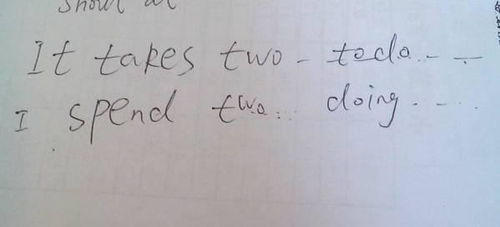 It takes two - to do... -
I spend two... doing....